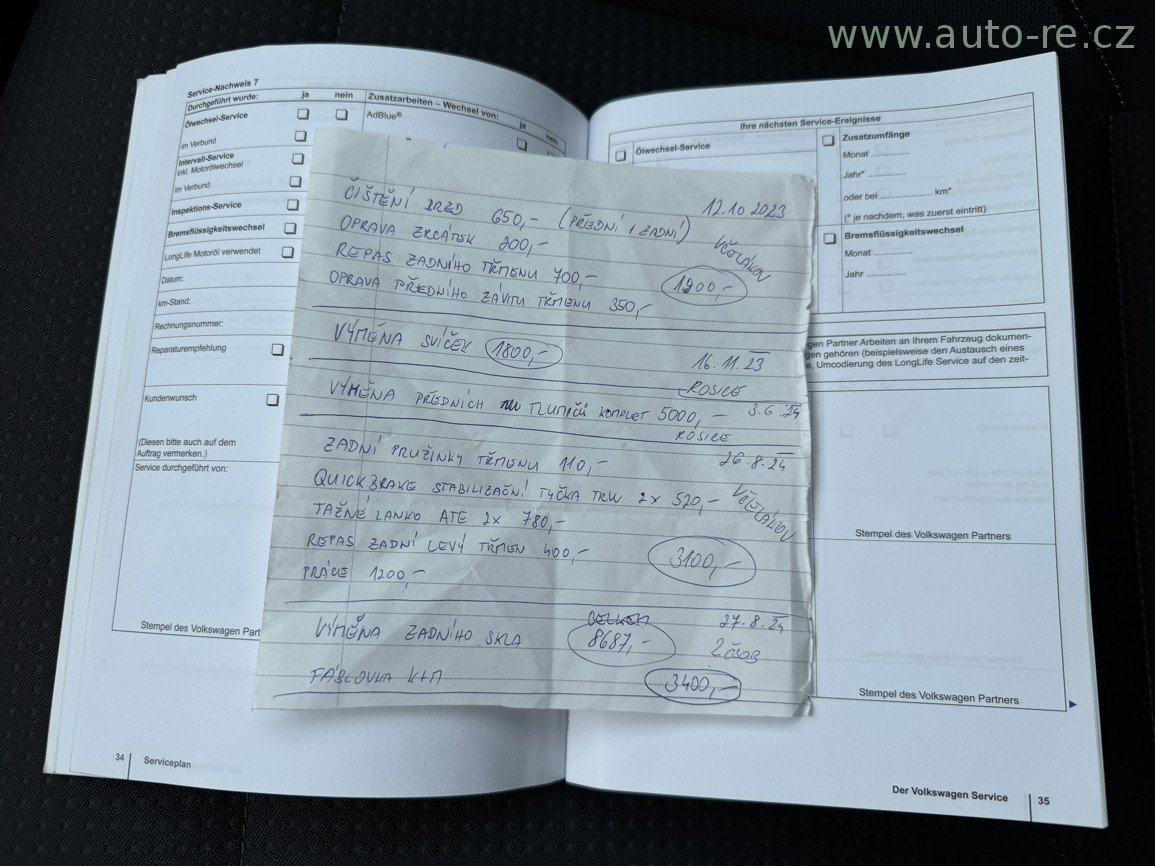 www.auto-re.cz
Service-Nachweis 7
Durchgeführt wurde: ja nein
Zusatzarbeiten – Wechsel von: ja nein
Ölwechsel-Service
AdBlue®
im Verbund
Intervall-Service
inkl. Motorölwechsel
im Verbund
Inspektions-Service
Bremsflüssigkeitswechsel
LongLife Motoröl verwendet
Datum:
km-Stand:
Rechnungsnummer:
Reparaturempfehlung
Kundenwunsch
(Diesen bitte auch auf dem
Auftrag vermerken.)
Service durchgeführt von:
Stempel des Volkswagen Part
34 Serviceplan
ČIŠTĚNÍ BRZD 650,- (PŘEDNÍ I ZADNÍ) 12.10 2023
OPRAVA ZRCÁTEK 200,- VČELÁKOV
REPAS ZADNÍHO TŘMENU 700,- 1900,-
OPRAVA PŘEDNÍHO ZÁVITU TŘMENU 350,-
VÝMĚNA SVÍČEK 1800,- 16.11.23
ROSICE
VÝMĚNA PŘEDNÍCH TLUMIČŮ KOMPLET 5000,- 3.6.24
ROSICE
ZADNÍ PRUŽINKY TŘMENU 110,- 26.8.24
QUICKBRAKE STABILIZAČNÍ TYČKA TRW 2x 520,- VČELÁKOV
TAŽNÉ LANKO ATE 2x 780,-
REPAS ZADNÍ LEVÝ TŘMEN 400,- 3100,-
PRÁCE 1200,-
CELKEM 27.8.24
VÝMĚNA ZADNÍHO SKLA 8687,-
FÁBLOVKA K+M 3400,-
Ihre nächsten Service-Ereignisse
Ölwechsel-Service
Zusatzumfänge
Monat ..............
Jahr* ..............
oder bei .................. km*
(* je nachdem, was zuerst eintritt)
Bremsflüssigkeitswechsel
Monat ..............
Jahr ..............
gen Partner Arbeiten an Ihrem Fahrzeug dokumen-
gen gehören (beispielsweise den Austausch eines
e, Umcodierung des LongLife Service auf den zeit-
Stempel des Volkswagen Partners
Stempel des Volkswagen Partners
Der Volkswagen Service 35